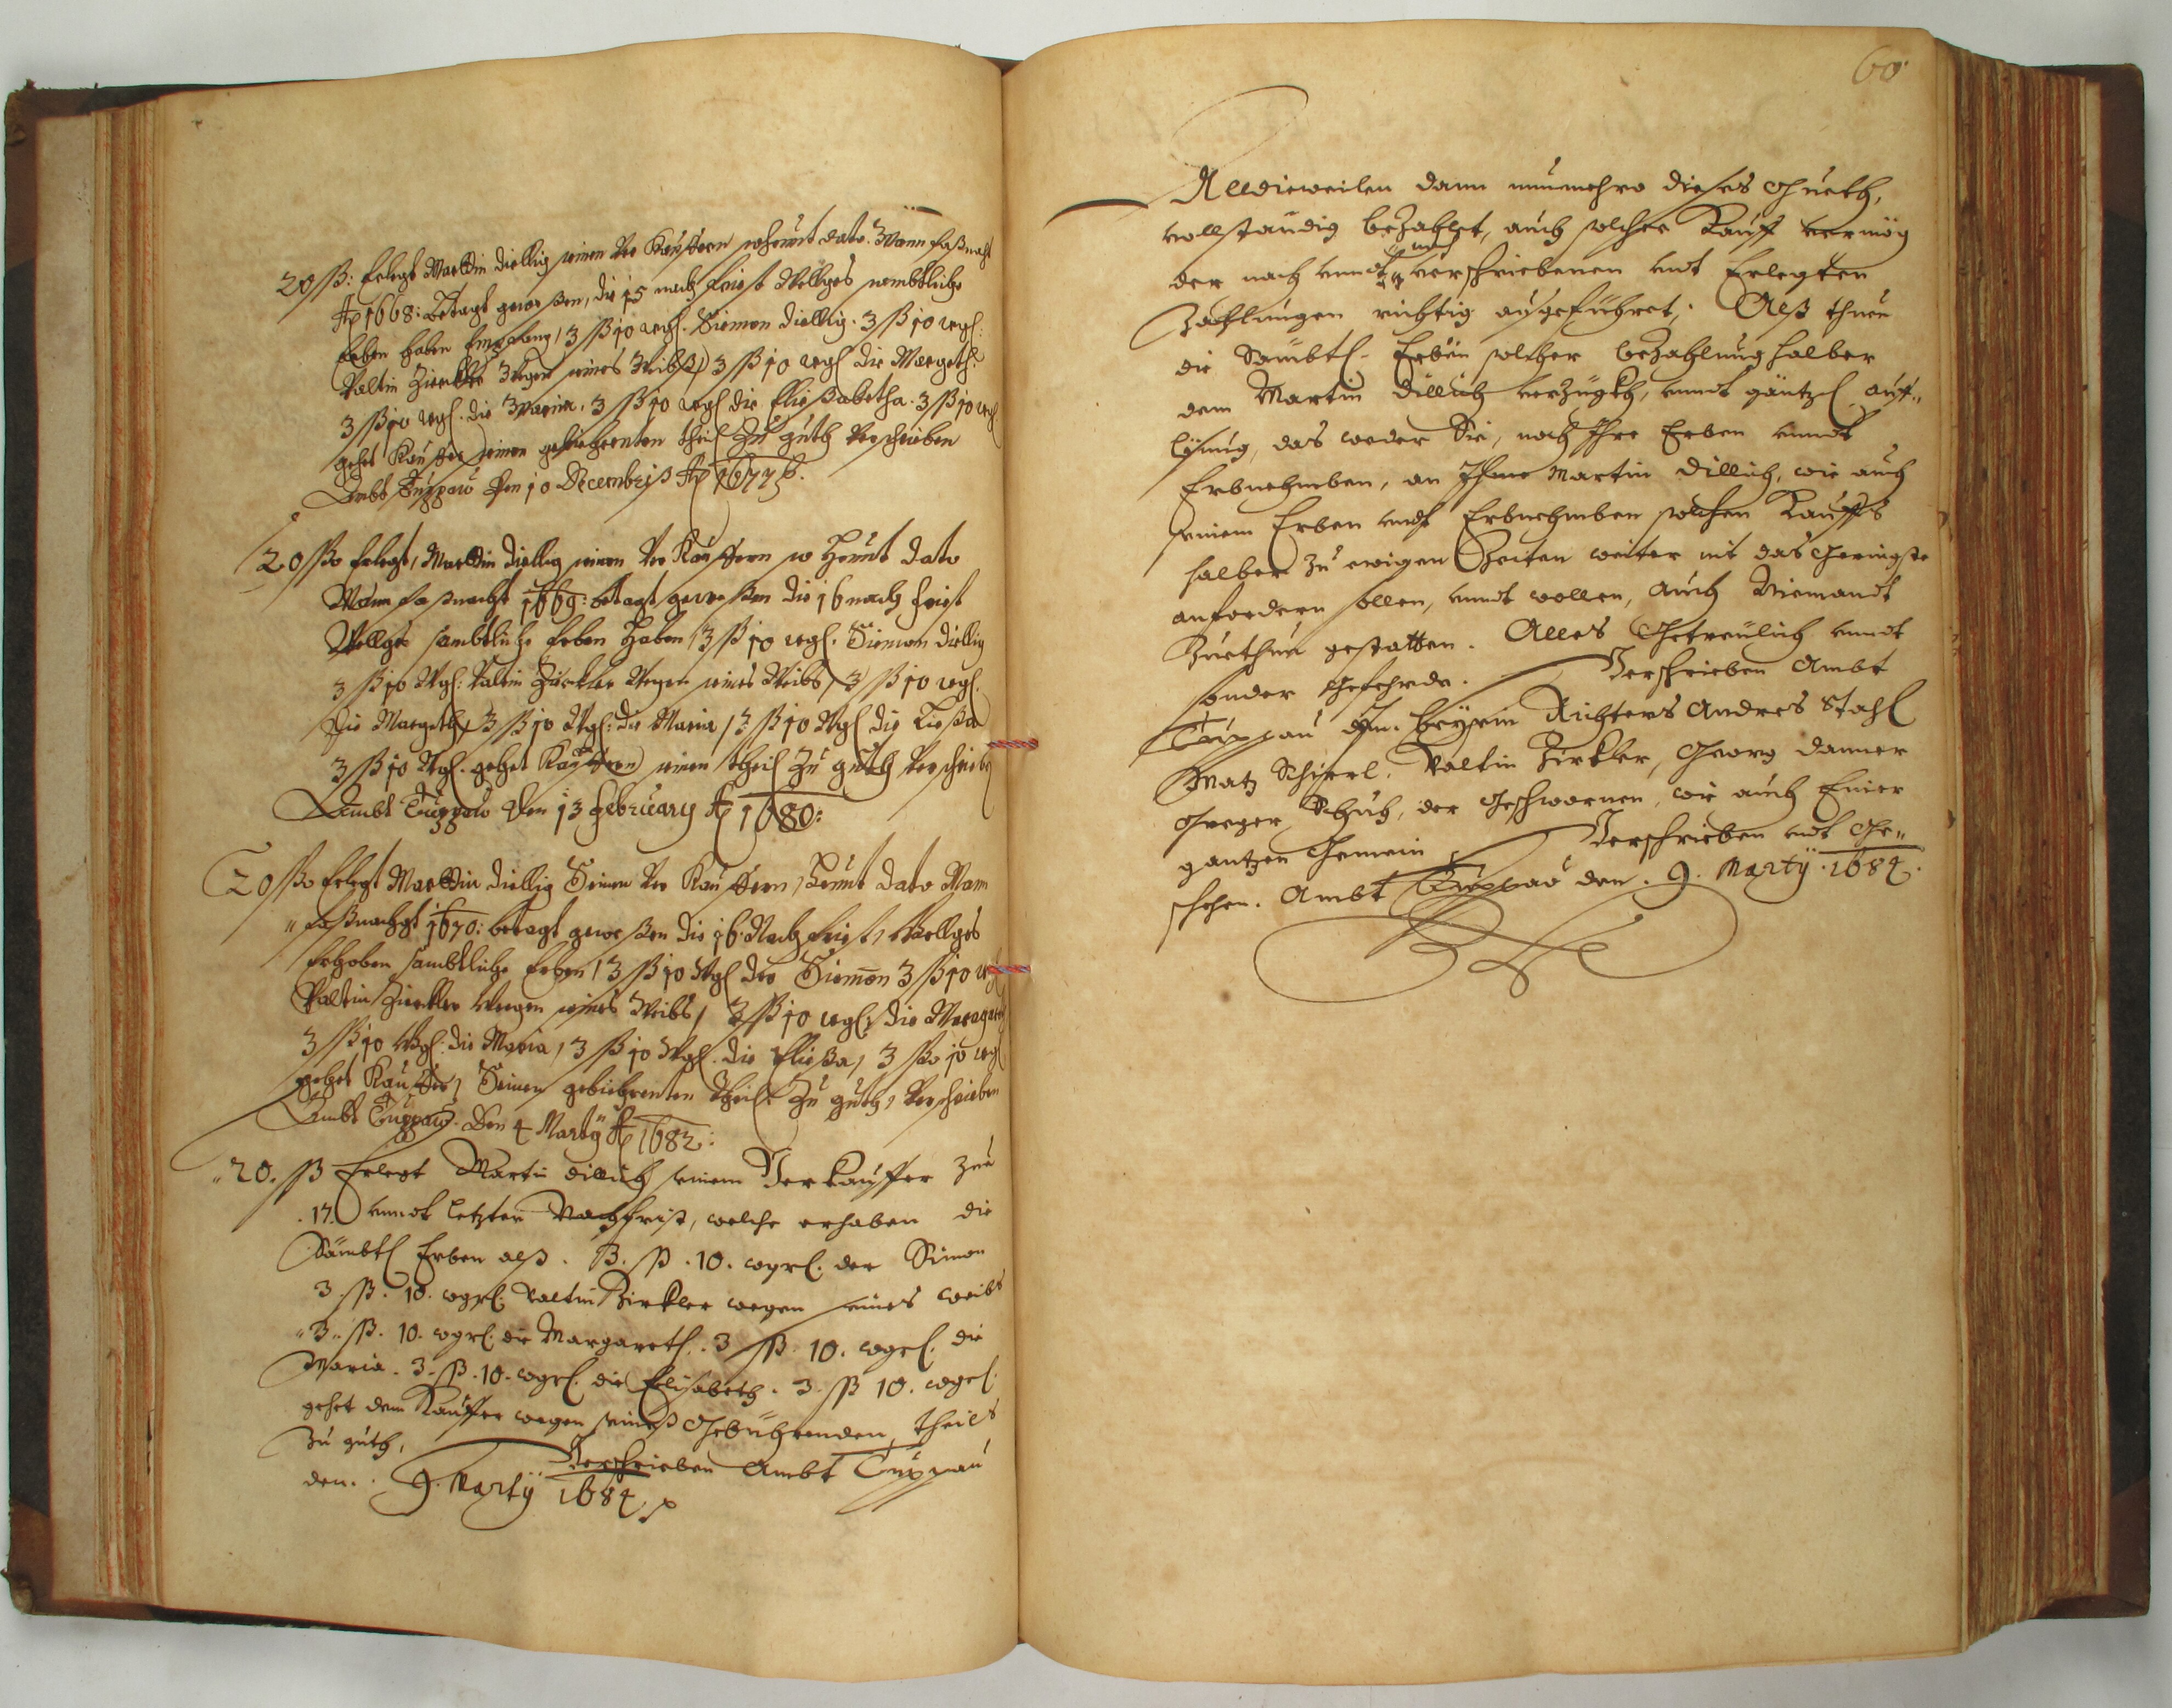 20 ß: Erlegt Marttin Diellig seinen Ver Kauffern so heunt dato. Wann faßnacht
Ao 1668: betagt geweßen, die 15 nach friest Wellges sembtliche
Erben haben 3 ß 10 wgl. Siemon Diellig. 3 ß 10 wgl:
Valtin Zierckler Wegen seines Weibß, 3 ß 10 wgl die Margeth:
3 ß 10 wgl. die Maria, 3 ß 10 wgl die Eließabetha. 3 ß 10 wgl.
gehet Kauffer seinen gebiehrenten theil Zu guth Verschrieben
Ambt Tuppaw Den 10 Decembriß Ao 1677
20 ßo Erlegt, Marttin Diellig seinen Ver Kauffern so Heunt dato
Wann faßnacht 1669: betagt geweßen die 16 nach friest
Wellges sambtliche Erben Haben, 3 ß 10 wgl. Siemon Diellig
3 ß 10 Wgl: Valtin Zierckler Wegen seines Weibs, 3 ß 10 wgl.
die Margeth, 3 ß 10 Wgl: die Maria, 3 ß 10 Wgl die Ließa
3 ß 10 Wgl. gehet Kauffern seinen theil Zu guth Verschrieben
Ambt Tuppaw Den 13 february Ao 1680:
20 ßo Erlegt Marttin Diellig Seinen Ver Kauffern, Heunt dato Wann
faßnachgt 1670: betagt geweßen die 16. Nach friest, Wellges
Erhoben sambtliche Erben, 3 ß 10 Wgl der Siemon 3 ß 10 wgl
Valtin Zierckler Wegen seines Weibs, 3 ß 10 wgl: die Margareth
3 ß 10 Wgl: die Maria, 3 ß 10 Wgl. die Eließa, 3 ßo 10 wgl
gehet Kauffer, Seinen gebiehrenten theil Zu guth, Verschrieben
Ambt Tuppaw. Den 4 Martÿ Ao 1682:
20. ß Erlegt Martin Dillich seinem Verkauffer zue
17. unndt letzten Nachfrist, welche erhaben die
Sämbtl Erben alß. 3. ß. 10. wgrl. der Simon
3. ß. 10. wgrl. Valtin Zirkler wegen seines weibs
3. ß. 10. wgrl. die Margareth. 3 ß. 10. wgrl. die
Maria. 3. ß. 10. wgrl. die Elisabeth. 3. ß 10. wgrl.
gehet dem Kauffer wegen seines Gebührenden theils
zu guth, Verschrieben Ambt Tuppau
den. 9. Martÿ 1684
60.
Alldieweilen dann nunmehro dieses Gueth,
vollständig bezahlet, auch solcher Kauff vermög
der nach unndt nach verschriebenen undt Erlegten
Zahlungen richtig außgeführet; Alß thuen
die Sämbtl. Erben solcher bezahlung halber
dem Martin Dillich verzügth, unndt gäntzl auff„
lösung, das weder Sie, noch Ihre Erben unndt
Erbnehmben, an Ihme Martin Dillich, wie auch
seinem Erben undt Erbnehmben solchen Kauffs
halber zu ewigen Zeiten weiter nit das Geringste
anfordern sollen, unndt wollen, Auch Niemandt
Zuethun gestatten. Alles Getreulich unndt
sonder Gefehrde. Verschrieben Ambt
Tuppau Beysein Richters Andres Stahl
Matz Schierl, Valtin Zirkler, Georg Danner
Greger Schuh, der Geschwornen, wie auch Einer
gantzen Gemein Verschrieben undt Ge„
schehen. Ambt Tuppau den. 9. Martÿ. 1684.